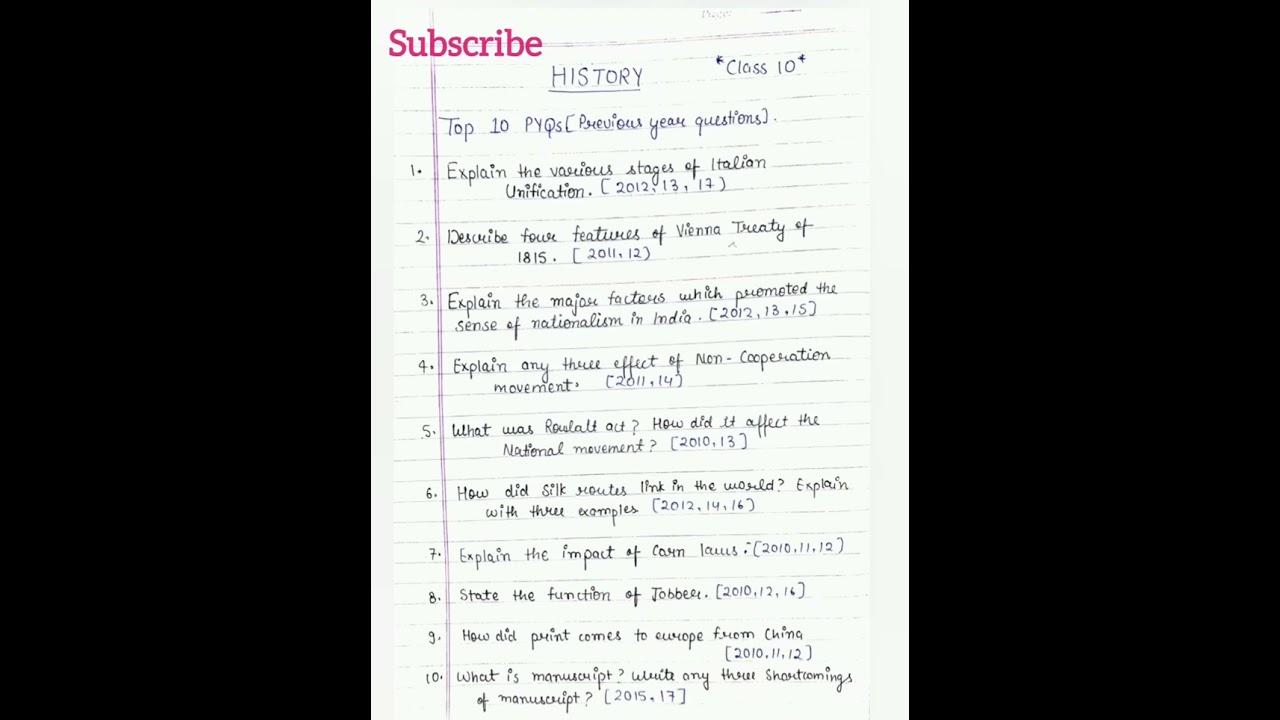 Page:
Subscribe
HISTORY
*Class 10*
Top 10 PYQs [Previous year questions].
1. Explain the various stages of Italian
Unification. [2012, 13, 17)
2. Describe four features of Vienna Treaty of
1815. [2011, 12)
3. Explain the major factors which promoted the
sense of nationalism in India. [2012, 13, 15]
4. Explain any three effect of Non-Cooperation
movement. [2011, 14)
5. What was Rowlatt act? How did it affect the
National movement? [2010, 13]
6. How did Silk routes link in the world? Explain
with three examples [2012, 14, 16]
7. Explain the impact of Corn laws :- [2010, 11, 12)
8. State the function of Jobber. [2010, 12, 16]
9. How did print comes to europe from China
[2010, 11, 12]
10. What is manuscript? Write any three Shortcomings
of manuscript? [2015, 17]